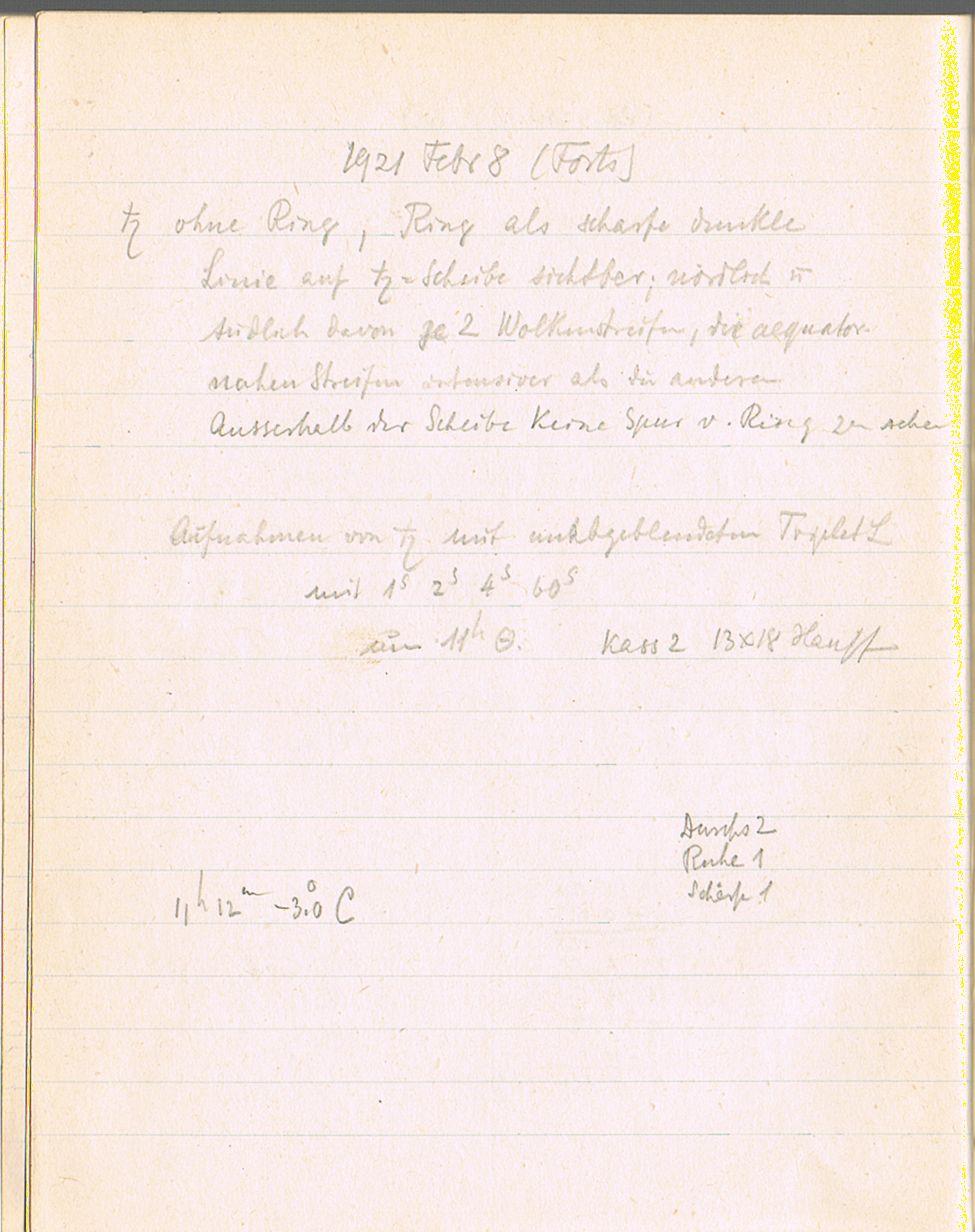 1921 Febr 8 (Forts)
♄ ohne Ring, Ring als scharfe dunkle
Linie auf ♄=Scheibe sichtbar; nördlich u
südlich davon je 2 Wolkenstreifen, die aequator-
nahen Streifen intensiver als die anderen
Ausserhalb der Scheibe keine Spur v. Ring zu sehen
Aufnahmen von ♄ mit unabgeblendetem Triplet
mit 1ˢ 2ˢ 4ˢ 60ˢ
um 11ʰ Kass 2 13×18 Hauff
Durchs 2
Ruhe 1
Schärfe 1
11ʰ 12ᵐ -3.°0 C